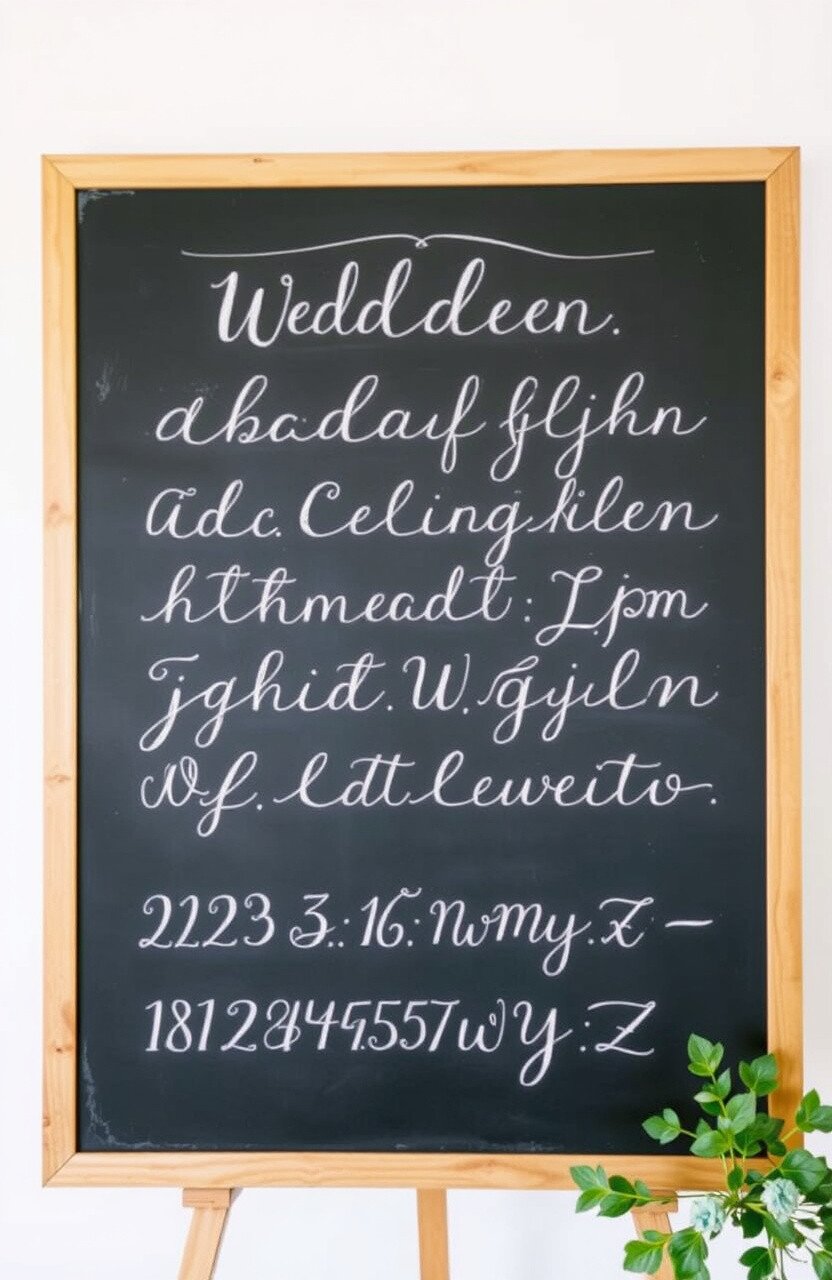 Wedddeen.
abadaif fljhn
Adc. Celing kilen
hthmeadt: I.jpm
Tjghid. W. Gyjln
Nf. ldtt leweito.
2223 3.: 16: NwMy. Z —
1812 557wy: Z